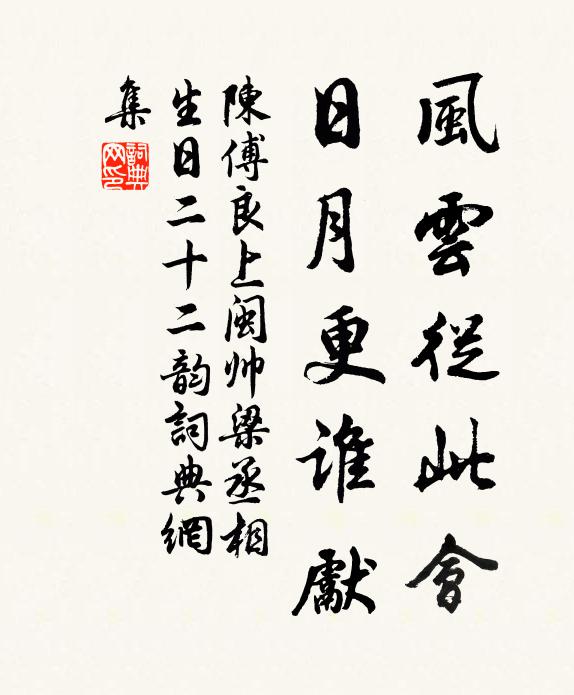 風雲從此會
日月更誰獻
陳傅良上闽帅梁丞相
生日二十二韵詞典網
集
詞典
网印